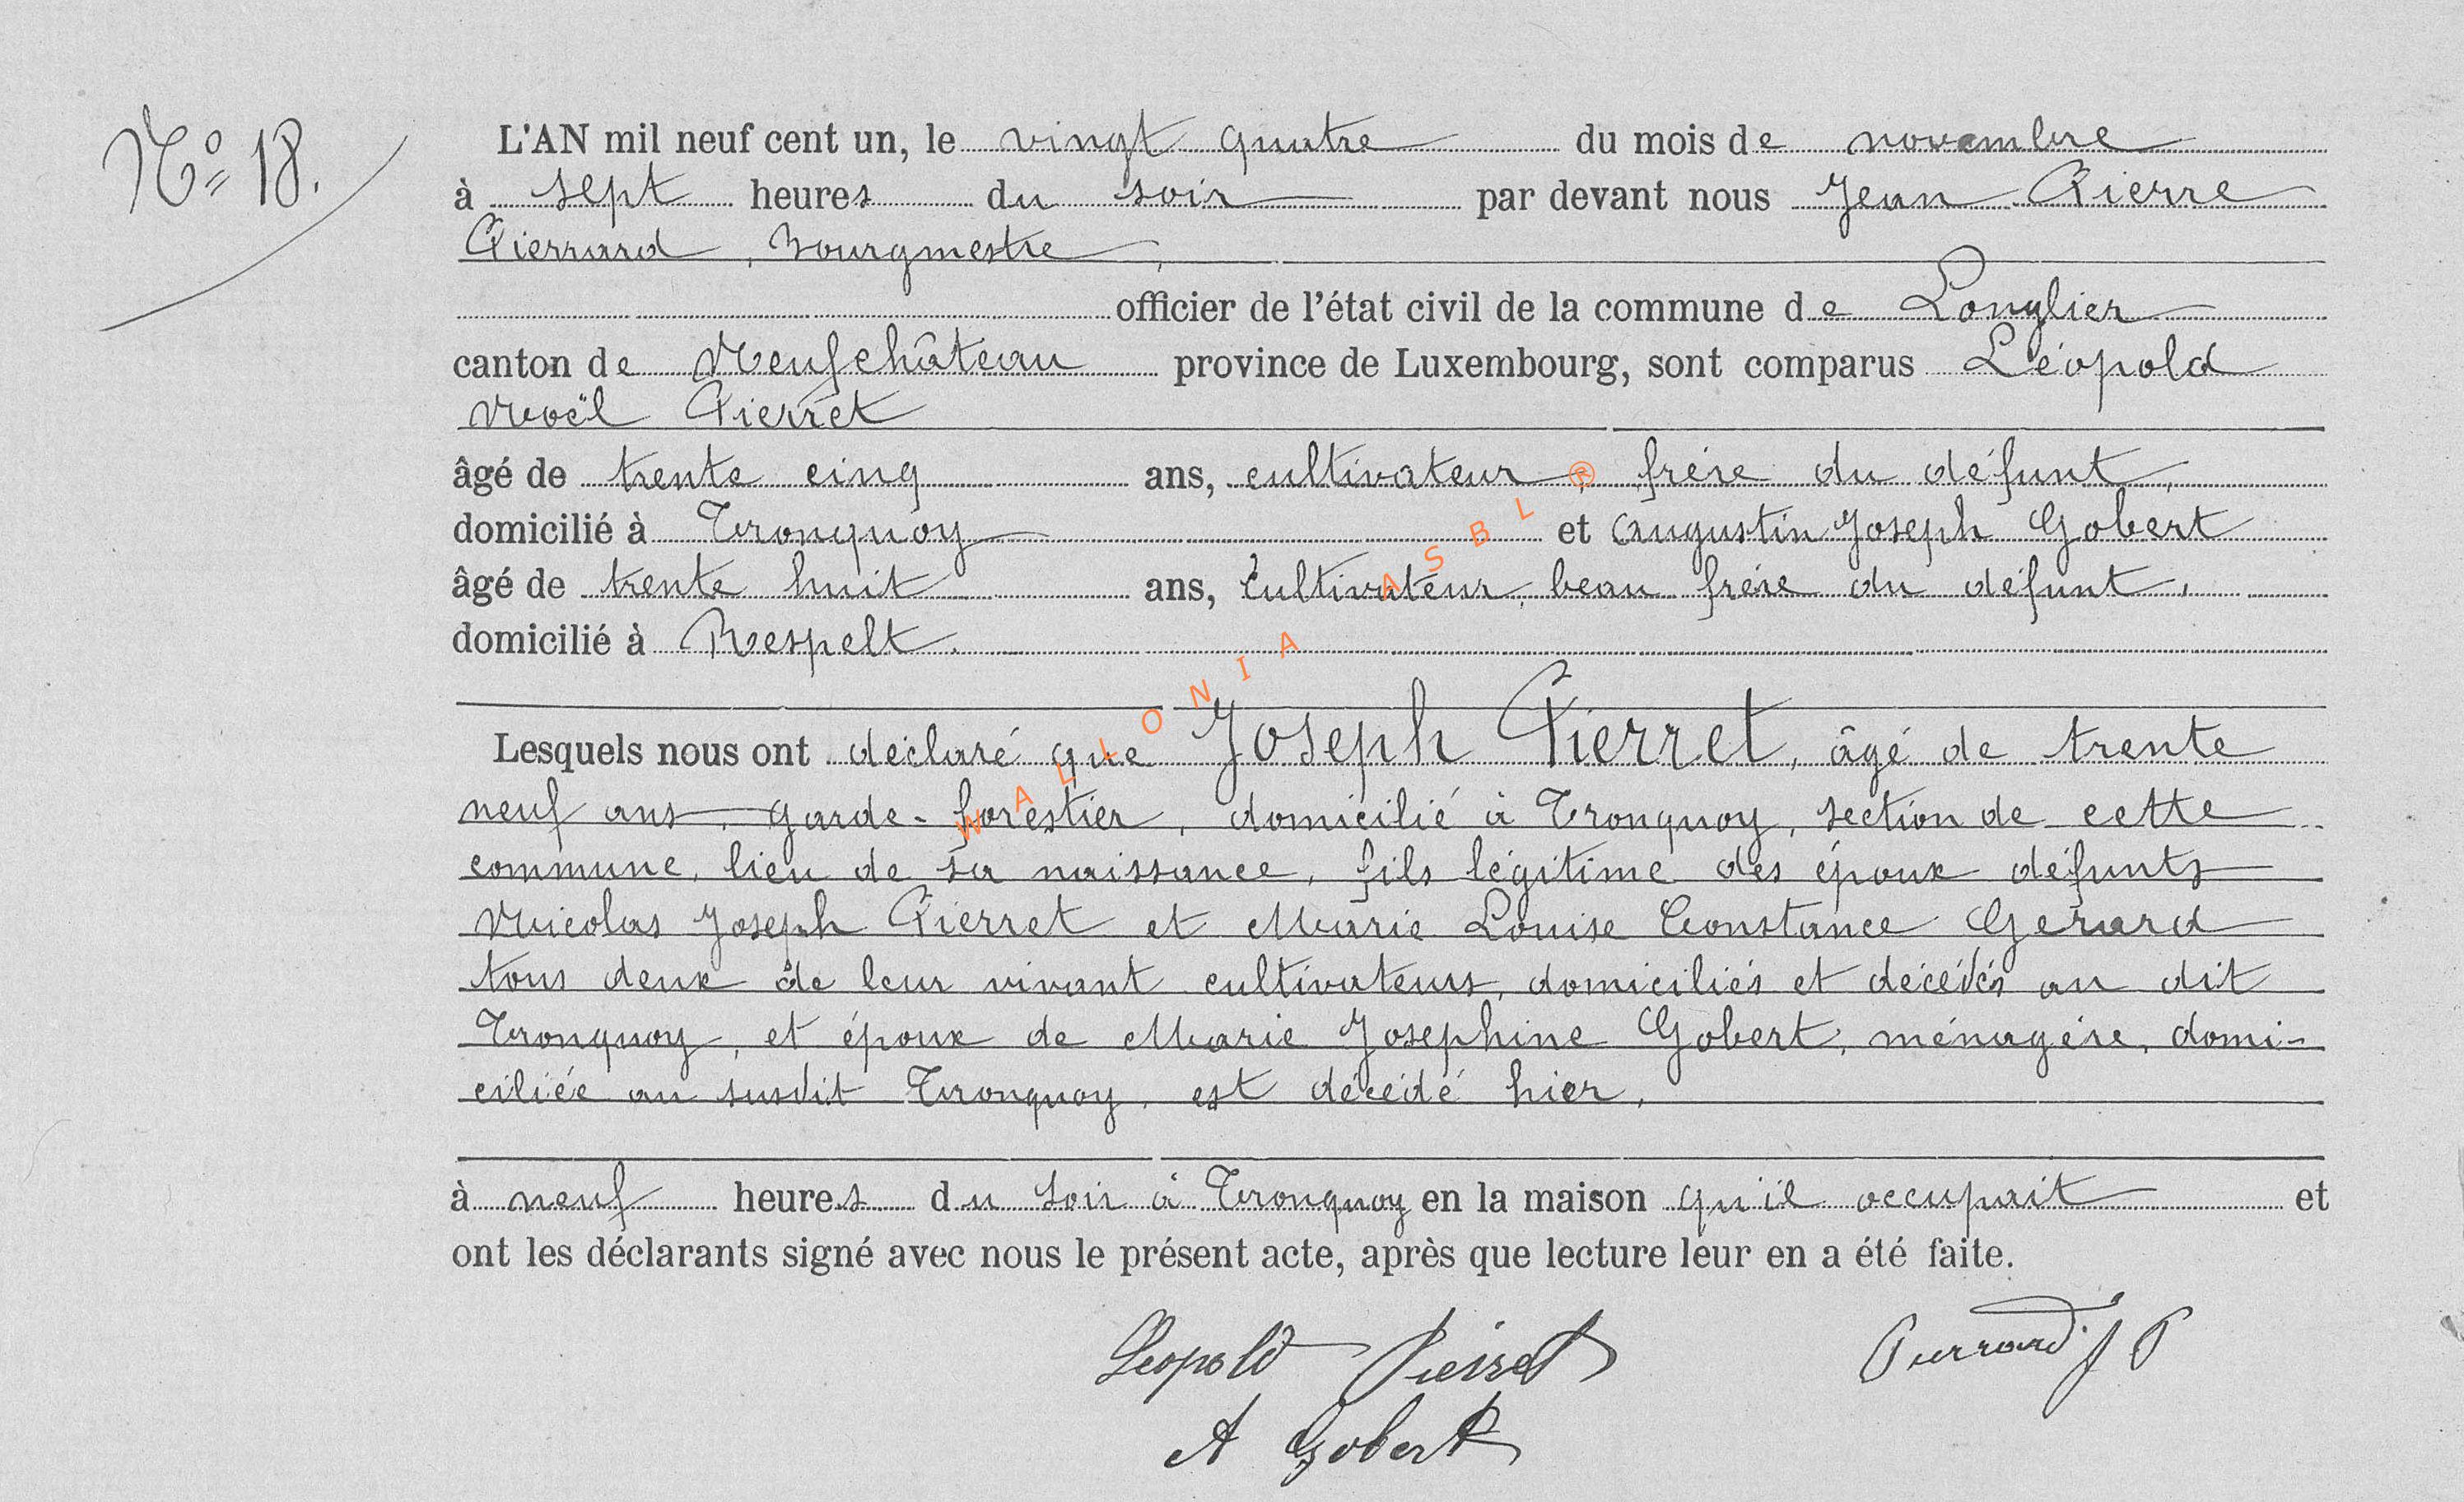 N° 18.
L'AN mil neuf cent un, le vingt quatre du mois de novembre
à sept heures du soir par devant nous Jean Pierre
Pierrard, Bourgmestre,
officier de l'état civil de la commune de Longlier
canton de Neufchâteau province de Luxembourg, sont comparus Léopold
Noël Pierret
âgé de trente cinq ans, cultivateur, frère du défunt,
domicilié à Tronquoy et Augustin Joseph Gobert
âgé de trente huit ans, cultivateur, beau frère du défunt,
domicilié à Respelt.
Lesquels nous ont déclaré que Joseph Pierret, âgé de trente
neuf ans, garde-forestier, domicilié à Tronquoy, section de cette
commune, lieu de sa naissance, fils légitime des époux défunts
Nicolas Joseph Pierret et Marie Louise Constance Gérard
tous deux de leur vivant cultivateurs, domiciliés et décédés au dit
Tronquoy, et époux de Marie Josephine Gobert, ménagère, domi-
ciliée au susdit Tronquoy, est décédé hier,
à neuf heures du soir à Tronquoy en la maison qu'il occupait et
ont les déclarants signé avec nous le présent acte, après que lecture leur en a été faite.
Léopold Pierret Pierrard J P
A Gobert
WALLONIA ASBL ®